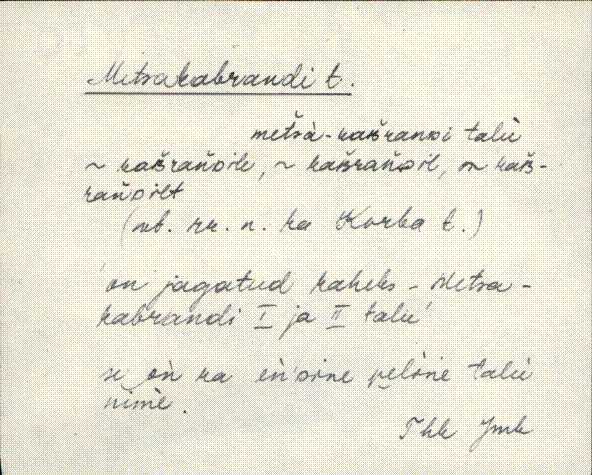 Metsakabrandi t.
metsà-kaʙrandi talù
~ kaʙrandile, ~ kaʙrandil, on kaʙ-
randilt
(mb. rr. n. ka Korba t.)
on jagatud kaheks - Metsa-
kabrandi I ja II talu
se òn ka èn'dine pelìne talù
nimè.
Thk Jmk